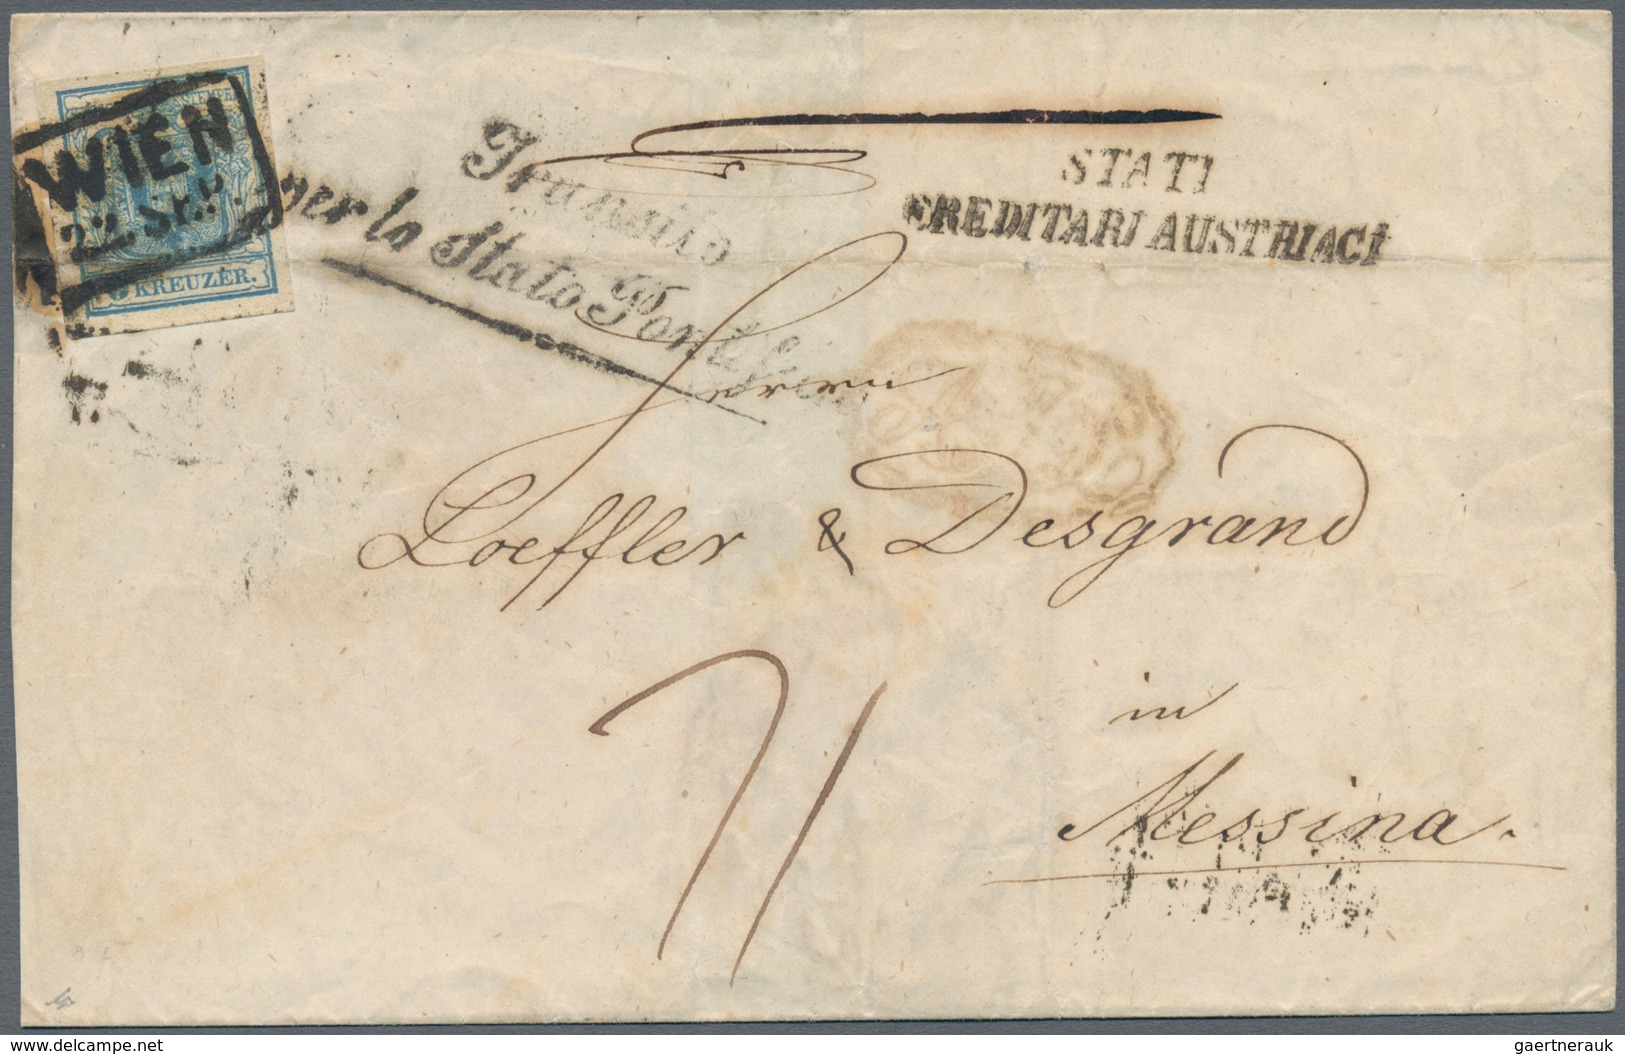 WIEN
22. SEP.
KREUZER.
Transito
per lo Stato Pontif
STATI
EREDITARJ AUSTRIACI
Herrn
Loeffler & Desgrand
in
Messina.
www.delcampe.net
gaertnerauk